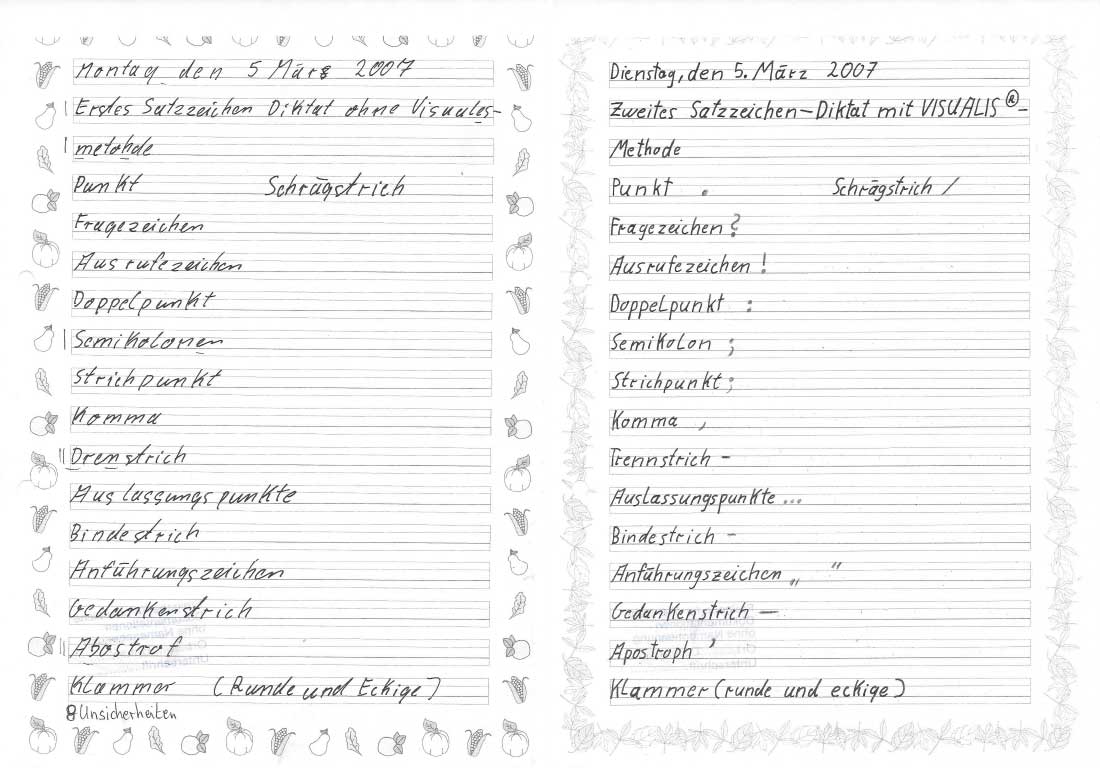 Montag den 5 März 2007
Erstes Satzzeichen Diktat ohne Visuales-
metohde
Punkt Schrägstrich
Fragezeichen
Ausrufezeichen
Doppelpunkt
Semikolonen
Strichpunkt
Komma
Drenstrich
Auslassungspunkte
Bindestrich
Anführungszeichen
Gedankenstrich
Abostrof
Klammer (Runde und Eckige)
8 Unsicherheiten
Dienstag, den 5. März 2007
Zweites Satzzeichen-Diktat mit VISUALIS®-
Methode
Punkt . Schrägstrich /
Fragezeichen ?
Ausrufezeichen !
Doppelpunkt :
Semikolon ;
Strichpunkt ;
Komma ,
Trennstrich -
Auslassungspunkte ...
Bindestrich -
Anführungszeichen „ “
Gedankenstrich —
Apostroph ’
Klammer (runde und eckige)